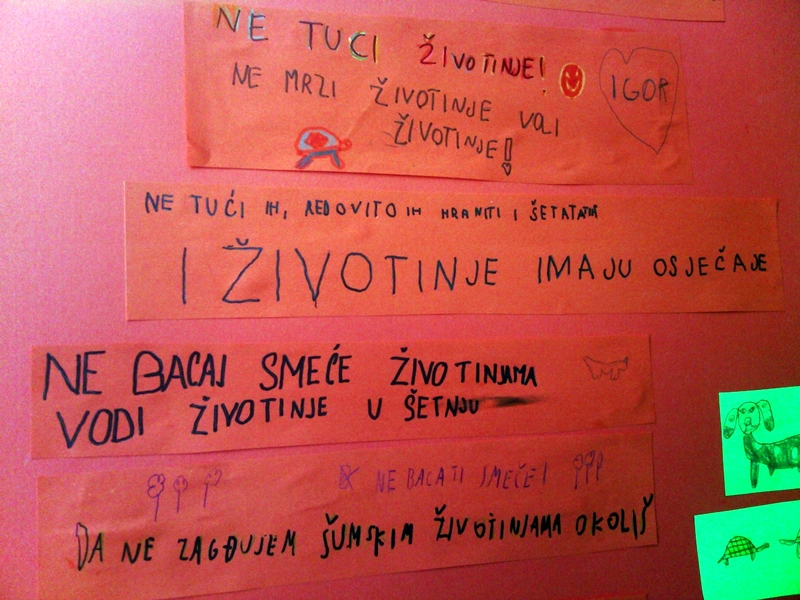 NE TUCI ŽIVOTINJE!
IGOR
NE MRZI ŽIVOTINJE VOLI
ŽIVOTINJE!
NE TUĆI IH, REDOVITO IH HRANITI I
I ŽIVOTINJE IMAJU OSJEČAJE
NE BACAJ SMEĆE ŽIVOTINJAMA
VODI ŽIVOTINJE U ŠETNJU
NE BACATI SMEČE!
DA NE ZAGĐUJEM ŠUMSKIM ŽIVOTINJAMA OKOLIŠ